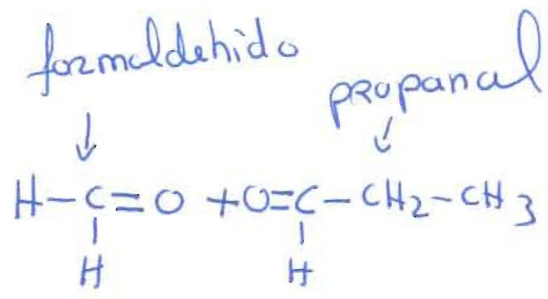 formaldehido
propanal
H-C=O +O=C-CH2-CH3
H H